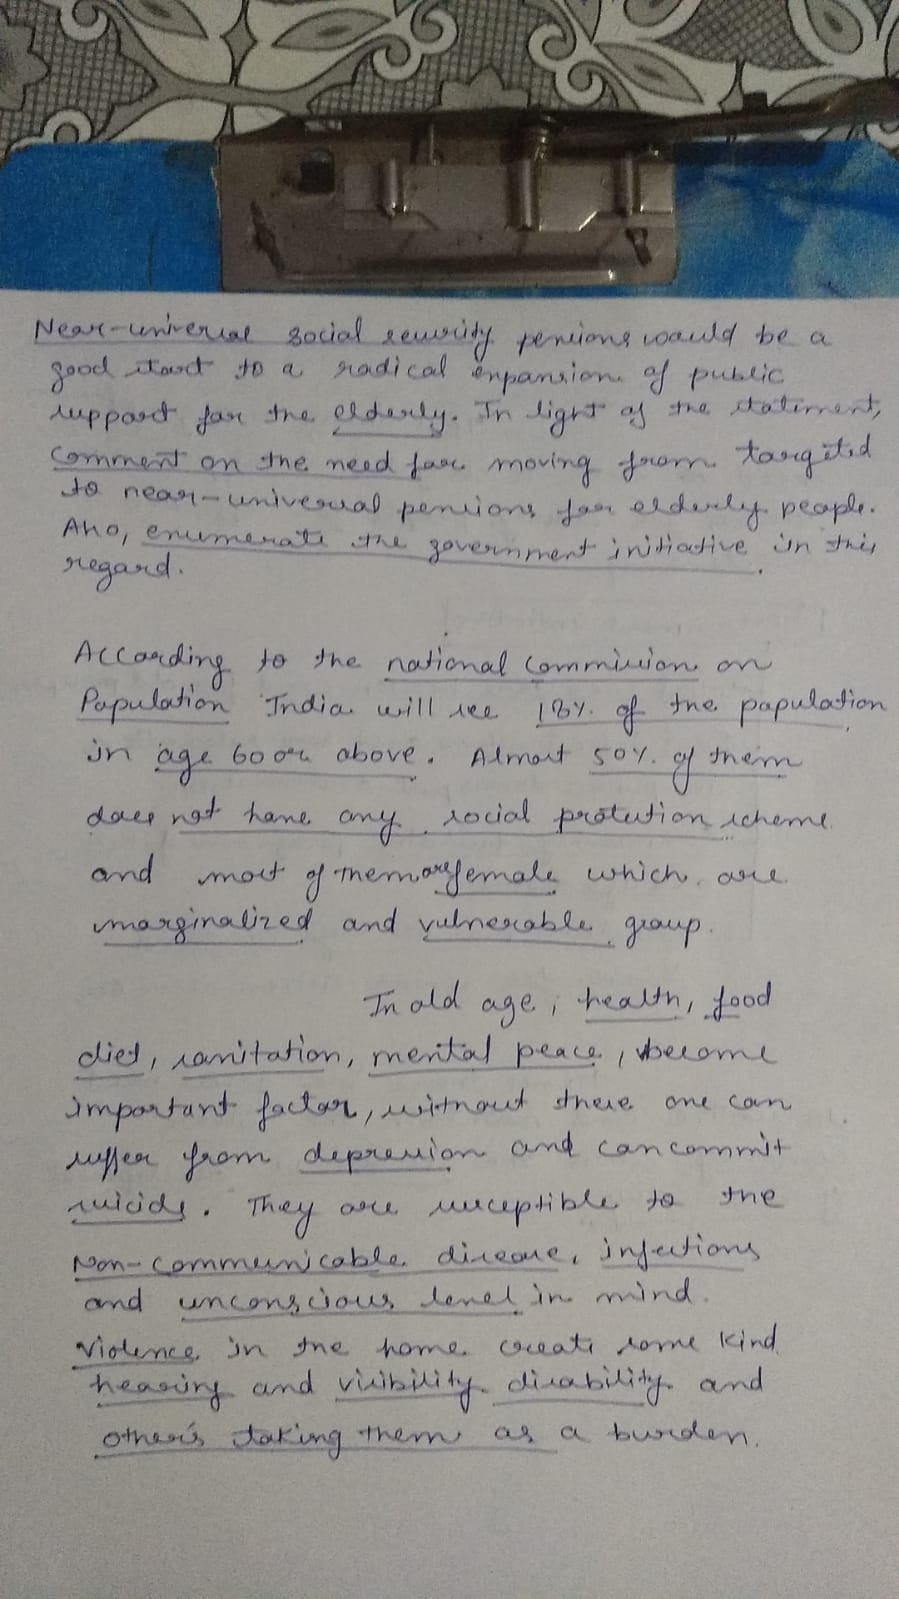 Near-universal social security pensions would be a
good start to a radical expansion of public
support for the elderly. In light of the statement,
comment on the need for moving from targeted
to near-universal pensions for elderly people.
Also, enumerate the government initiative in this
regard.
According to the national commission on
Population India will see 18% of the population
in age 60 or above. Almost 50% of them
does not have any social protection scheme
and most of them are female which are
marginalized and vulnerable group.
In old age, health, food
diet, sanitation, mental peace, become
important factor, without there one can
suffer from depression and can commit
suicide. They are susceptible to the
Non-communicable disease, infections
and unconscious level in mind.
Violence in the home create some kind
hearing and visibility disability and
other's taking them as a burden.